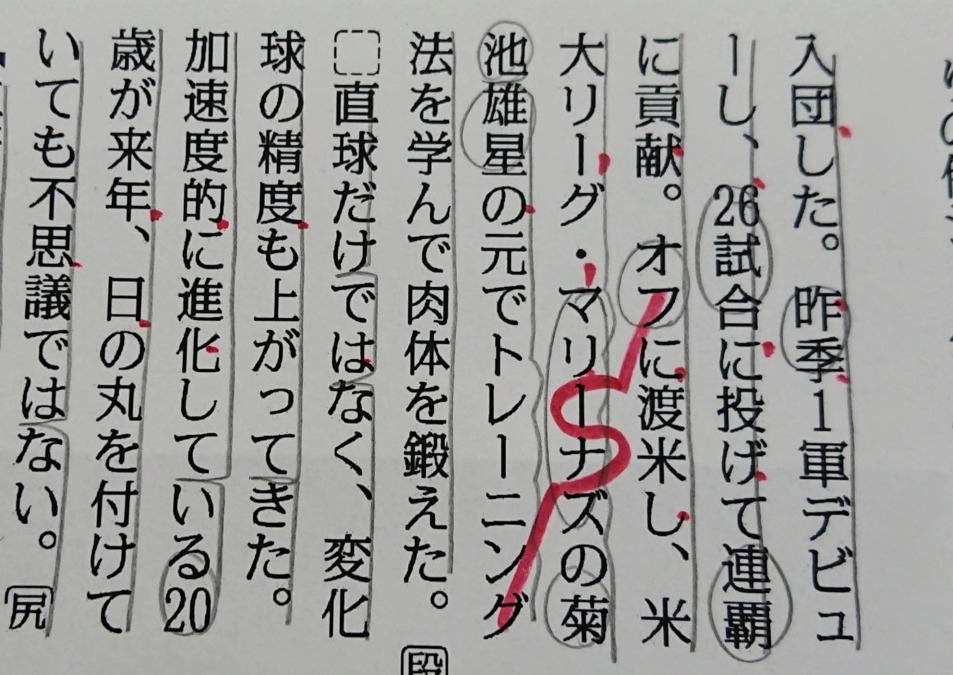 入団した。昨季1軍デビュ
ーし、26試合に投げて連覇
に貢献。オフに渡米し、米
大リーグ・マリーナズの菊
池雄星の元でトレーニング
法を学んで肉体を鍛えた。段
直球だけではなく、変化
球の精度も上がってきた。
加速度的に進化している20
歳が来年、日の丸を付けて
いても不思議ではない。尻